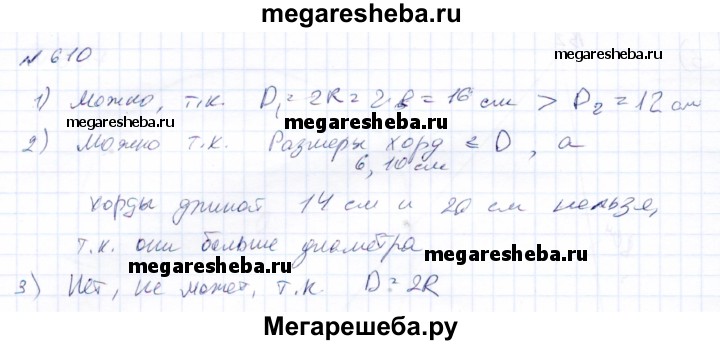 megaresheba.ru
№ 610
megaresheba.ru megaresheba.ru
1) Можно, т.к. D₁ = 2R = 2·8 = 16 см > D₂ = 12 см
megaresheba.ru megaresheba.ru
2) Можно т.к. Размеры хорд ≤ D, а
6, 10 см
хорды длиной 14 см и 20 см нельзя,
т.к. они больше диаметра
megaresheba.ru megaresheba.ru
3) Нет, не может, т.к. D = 2R
Мегарешеба.ру